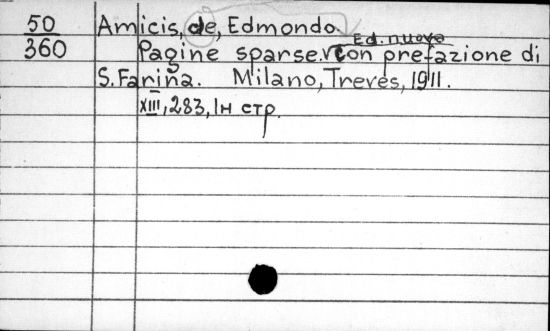 50 Amicis, de, Edmondo.
Ed. nuova
360 Pagine sparse. Con prefazione di
S. Farina. Milano, Treves, 1911.
XIII, 283, 1н стр.